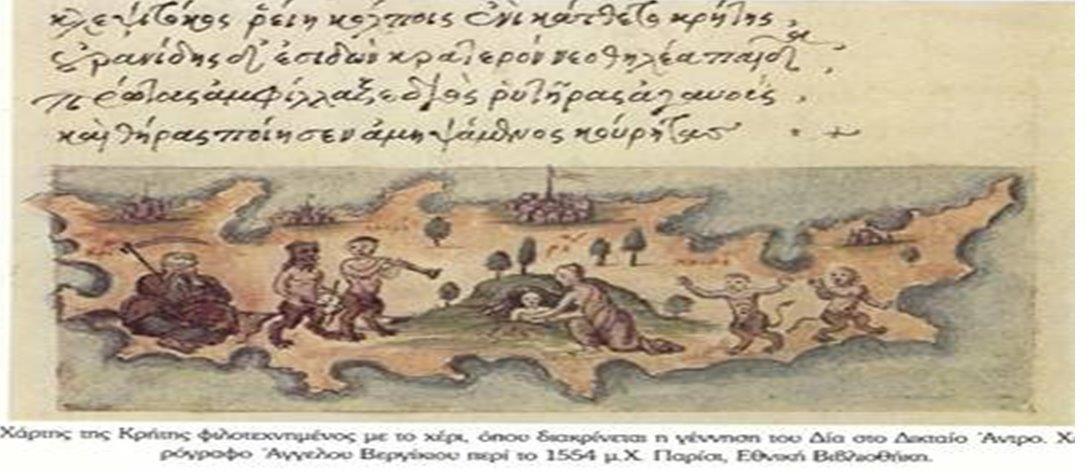 κλεψιτόκος ῥείη κόλποις ἐνικάτθετο κρήτης,
οὐρανίδης δ' ἐσιδὼν κρατερὸν νεοθηλέα παῖδα,
πρώτας ἀμφίλλαξε διὸς ῥυτῆρας ἀγαυοὺς,
καὶ θῆρας ποίησεν ἀμειψάμενος κουρῆτας
Χάρτης της Κρήτης φιλοτεχνημένος με το χέρι, όπου διακρίνεται η γέννηση του Δία στο Δικταίο Άντρο.
ρόγραφο Άγγελου Βεργίκιου περί το 1554 μ.Χ. Παρίσι, Εθνική Βιβλιοθήκη.